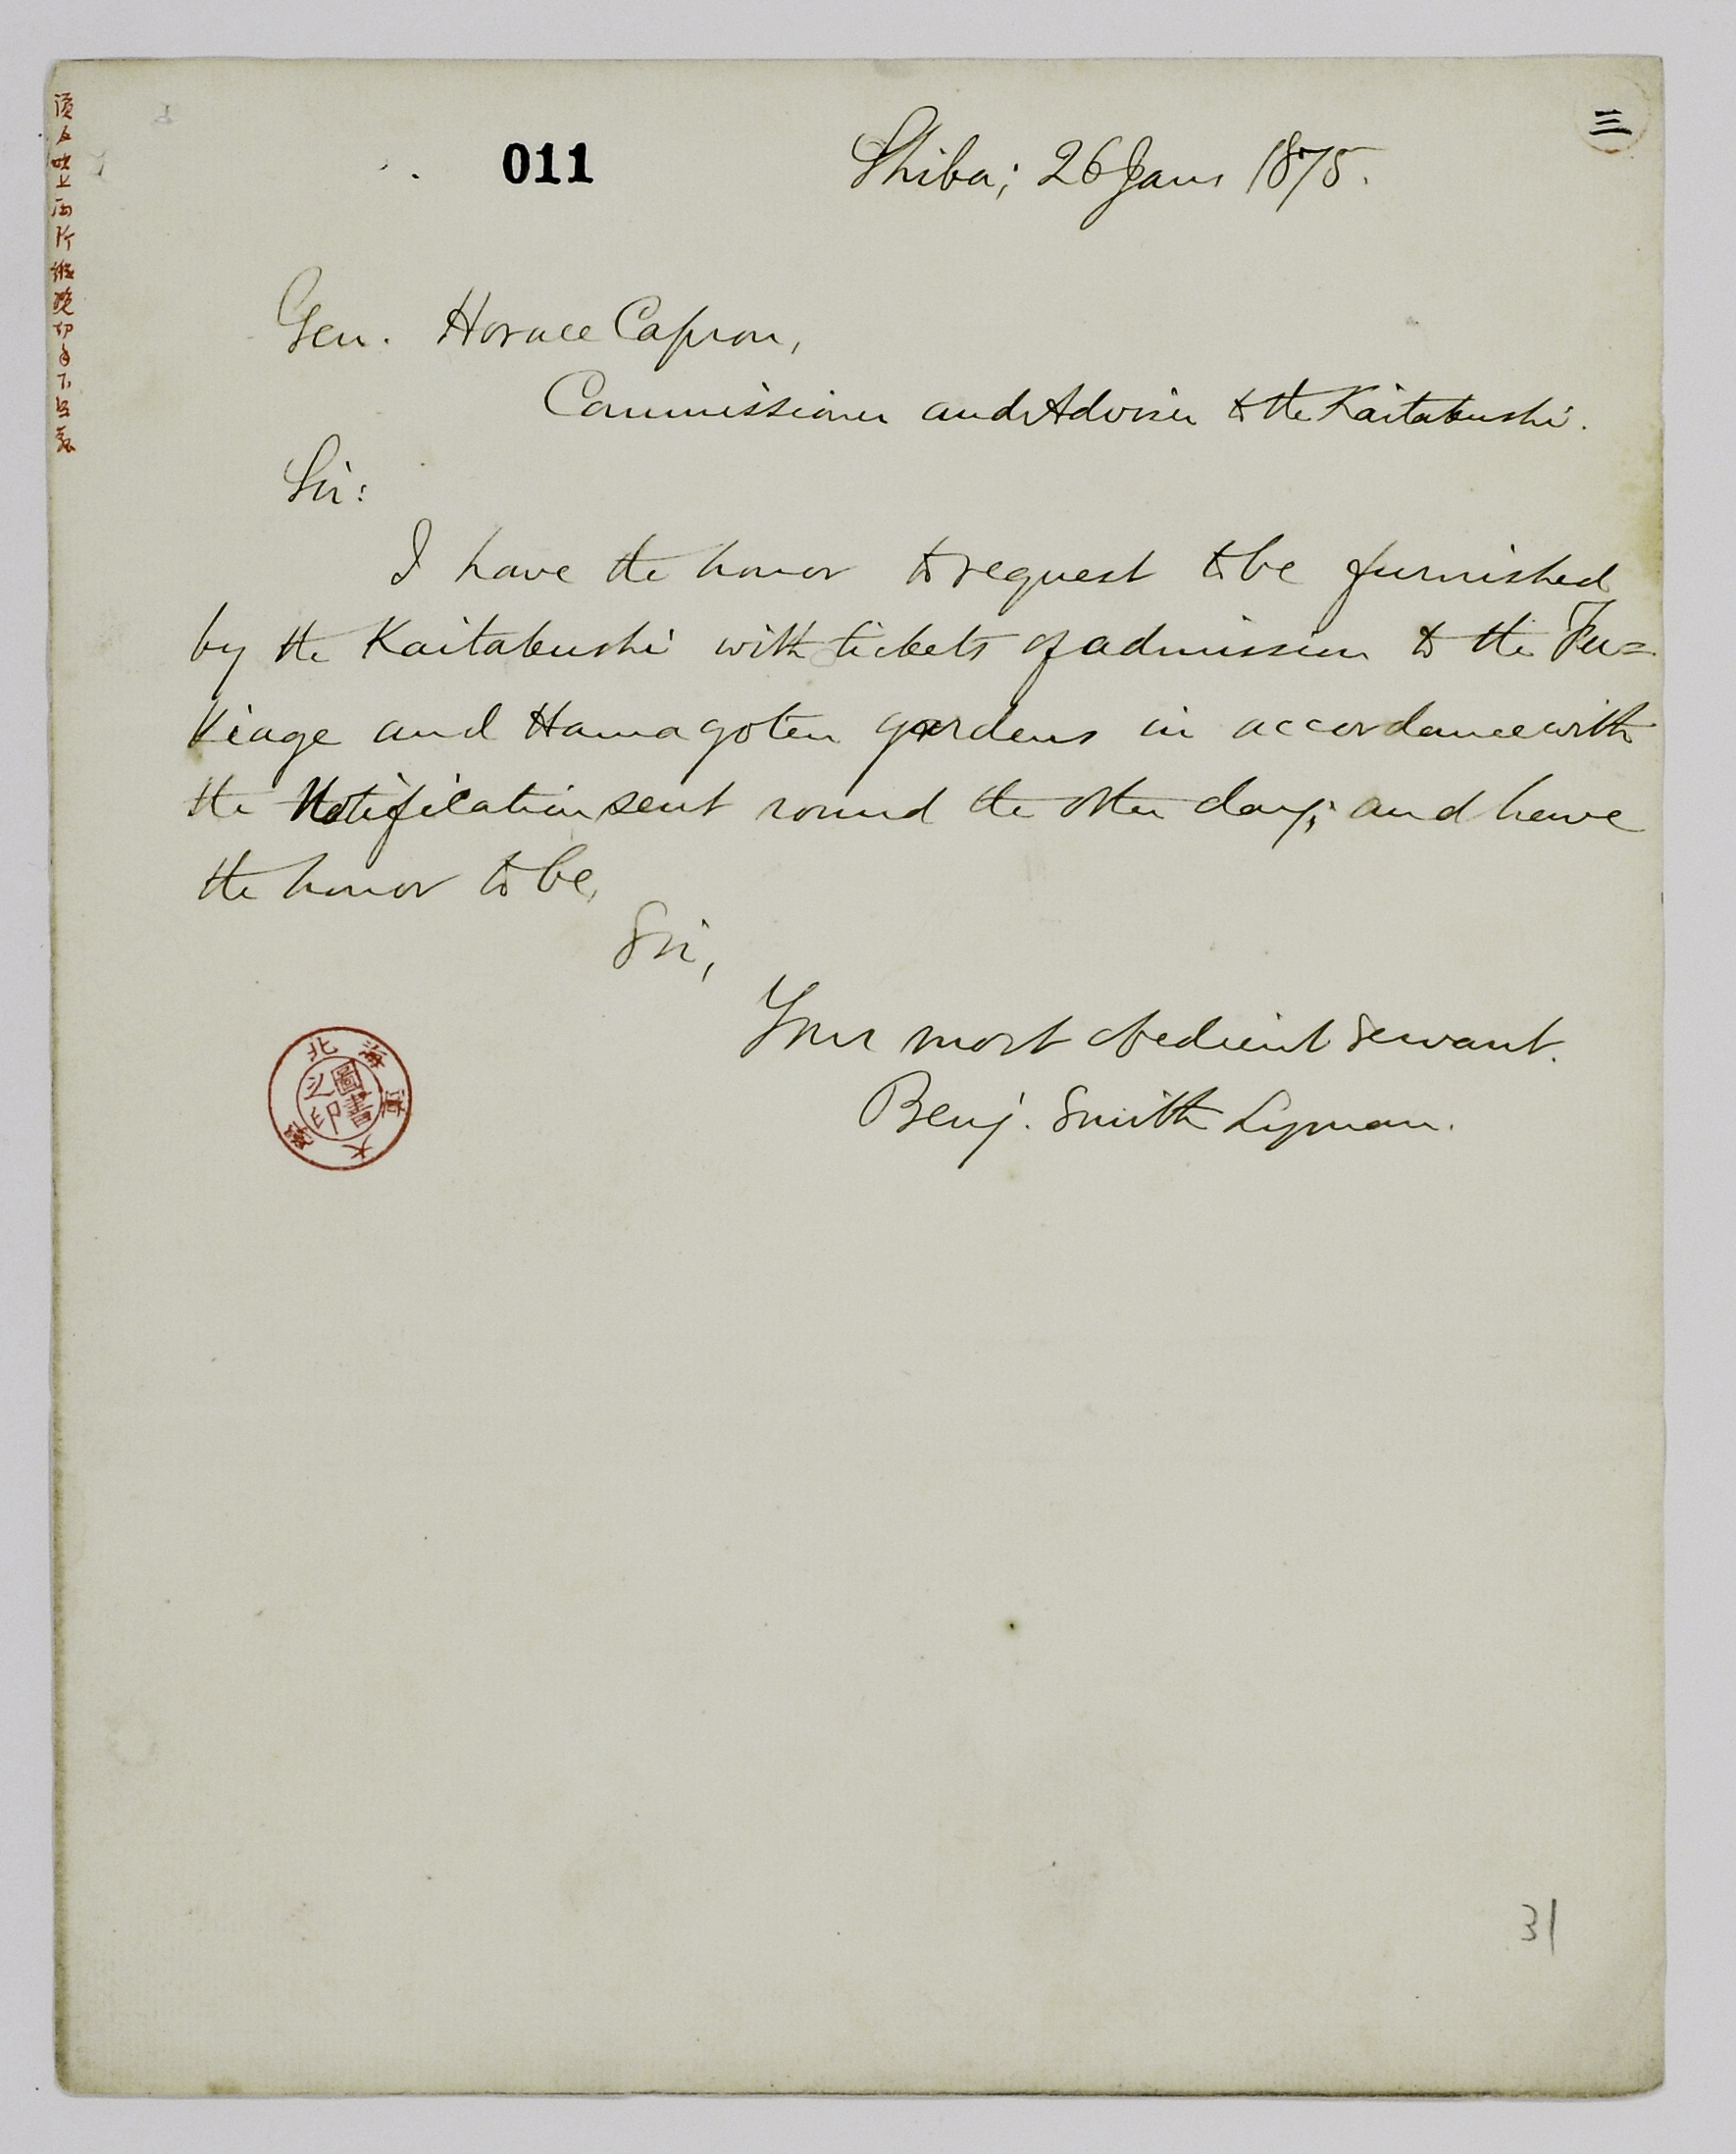 三
011
Shiba; 26 Jan. 1875.
Gen. Horace Capron,
Commissioner and Adviser to the Kaitakushi.
Sir:
I have the honor to request to be furnished
by the Kaitakushi with tickets of admission to the Fu=
kiage and Hamagoten gardens in accordance with
the Notification sent round the other day; and have
the honor to be,
Sir,
Your most obedient servant.
Benj. Smith Lyman.
北海道大學
圖書之印
31